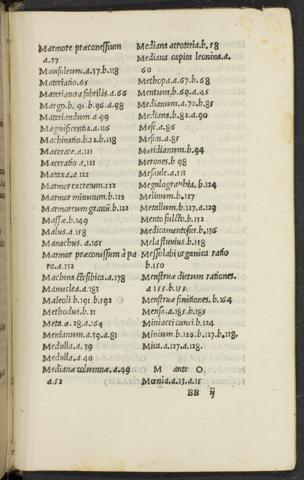 Marmore præconessium
a.27
Mausoleum.a.37.b.118
Materiatio.65
Materiatura fabrilis.a.66
Margo.b.91.b.96.a.98
Materiandum a.99
Magnificentia.a.116
Machinatio.b.12.b.118
Macerare.a.121
Maceratio a.121
Mataxa.a.122
Marmor.122
Marmor minutum.b.123
Marmorum grani b.122
Massæ.b.149
Malus.a.158
Manachus.a.165
Marmor præconessium à pa
ro.a.172
Machina Ctesibica.a.178
Manuclea.a.183
Maleoli b.191.b.192
Methodus.b.21
Meta.a.28.a.164
Menianum.a.39.a.81
Medulla.a.39
Medulla.a.40
Medianæ columnæ.a.49
a.52
Mediana acroteria.b.58
Mediana capita leonina.a.
60
Methopa.a.67.b.68
Mentum.b.69.a.45
Medianum.a.70.b.85
Mediana.b.82.a.90
Mese.a.86
Meson.a.85
Meridianum.b.94
Merones.b.98
Mesaulæ.a.113
Megalographia.b.124
Melinum.b.127
Metallum.b.127.a.129
Mento fulcto.b.132
Medicamentosus.b.136
Mela fluvius.b.138
Messolabi organica ratio
b.150
Menstruæ dierum rationes.
a 155.b.155.
Menstruæ finitiones.b.164
Mensa.a.185.b.185
Miniacei cunei.b.124
Minium.b.126.b.127.b.128.
Mica.127.a.128.
M ante O
Mœnia.a.13.a.15
BB ij